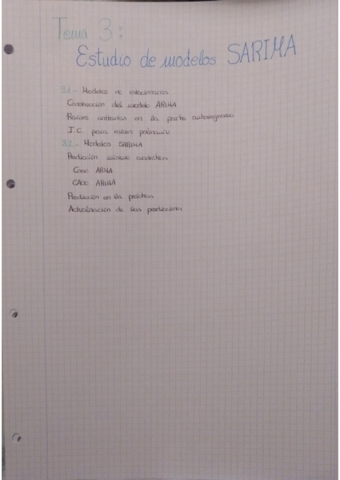 Tema 3:
Estudio de modelos SARIMA
3.1.- Modelos no estacionarios
Construcción del modelo ARIMA
Raíces unitarias en la parte autorregresiva
I.C. para
3.2.- Modelos SARIMA
Predicción mínimo cuadrática
Caso ARMA
Caso ARIMA
Predicción en la práctica
Actualización de las predicciones